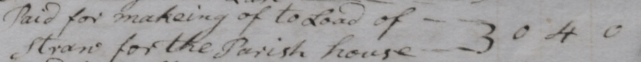 Paid for makeing of to Load of —
Straw for the Parish house — } 0 4 0